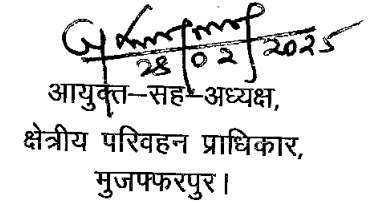 28/02/2025
आयुक्त-सह-अध्यक्ष,
क्षेत्रीय परिवहन प्राधिकार,
मुजफ्फरपुर।